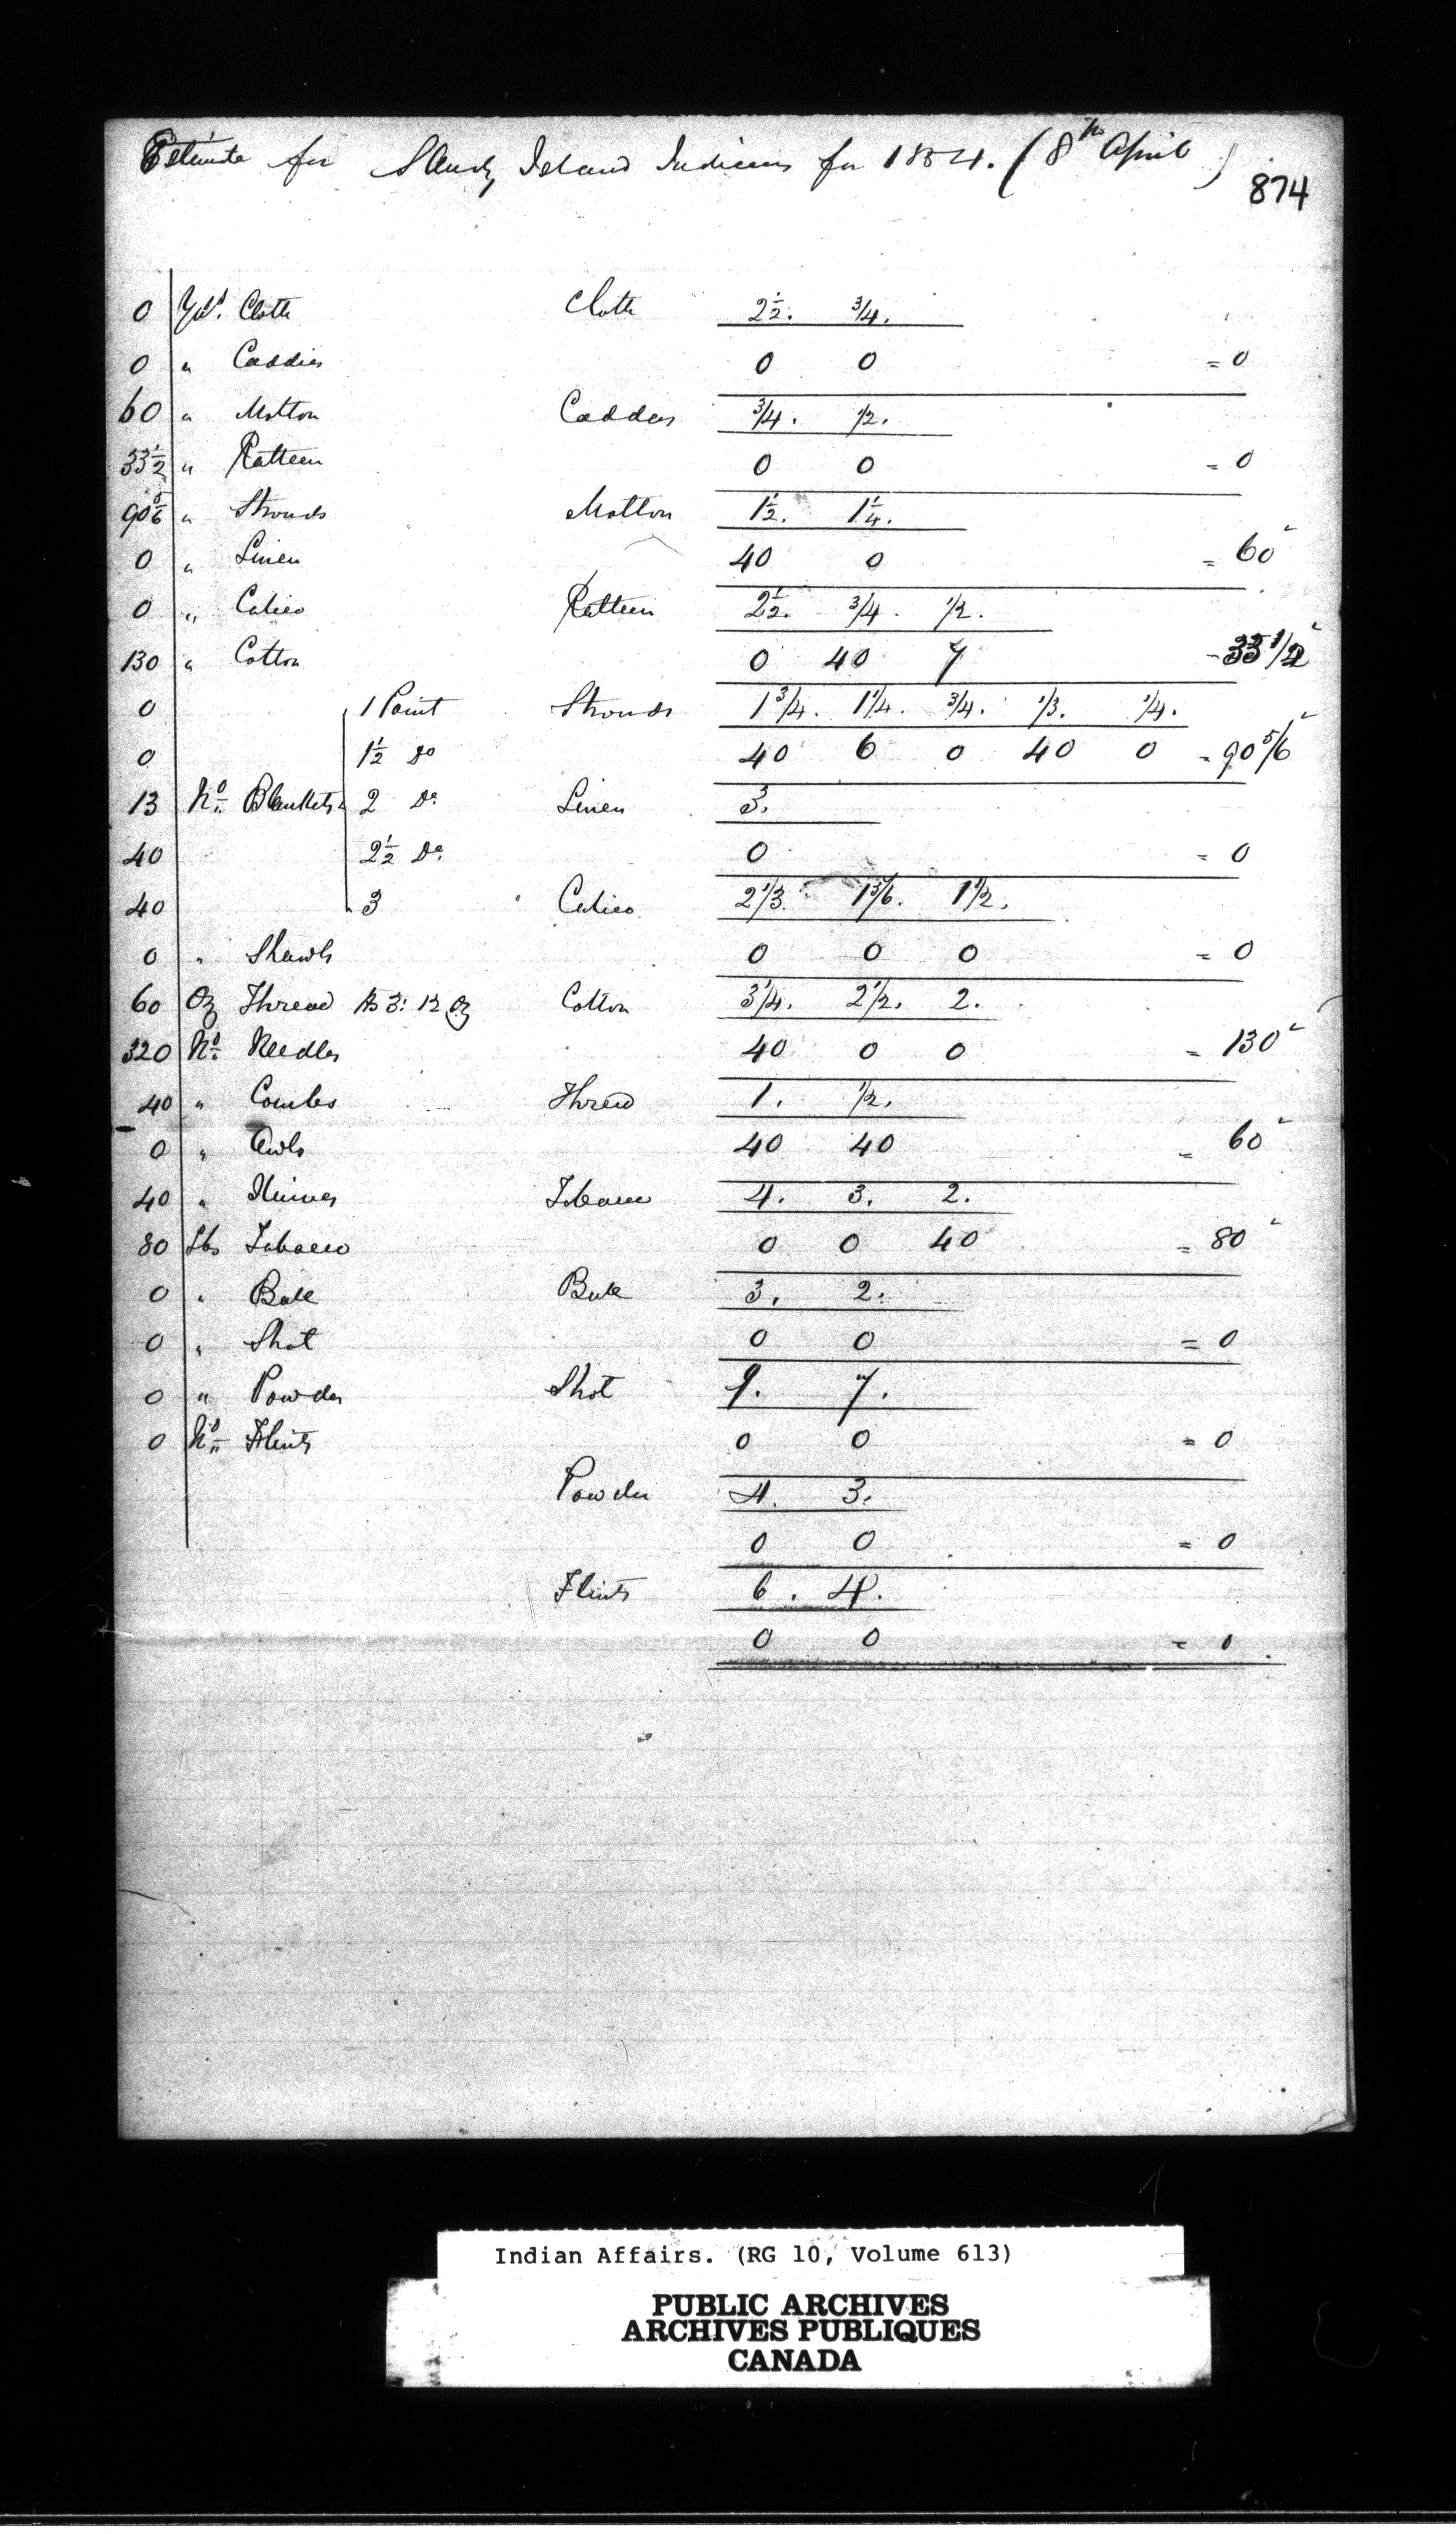 Estimate for Sandy Island Indians for 1854. (8th April)
874
0 Yds. Cloth Cloth 2½. ¾.
0 " Caddies 0 0 = 0
60 " Molton Caddies ¾. ½.
33½ " Ratteen 0 0 = 0
90 5/6 " Strouds Molton 1½. 1¼.
0 " Linen 40 0 = 60
0 " Calico Ratteen 2½. ¾. ½.
130 " Cotton 0 40 7 - 33 1/2
0 1 Point Strouds 1¾. 1¼. ¾. ⅓. ¼.
0 1½ Do 40 6 0 40 0 - 90 5/6
13 No. Blankets 2 Do. Linen 3.
40 2½ Do. 0 = 0
40 3 Calico 2⅓. 1 5/6. 1½.
0 " Shawls 0 0 0 = 0
60 Oz Thread 3: 12 Oz Cotton 3¼. 2½. 2.
320 No. Needles 40 0 0 = 130
40 " Combs Thread 1. ½.
0 " Awls 40 40 = 60
40 " Knives Tobacco 4. 3. 2.
80 Lbs Tobacco 0 0 40 = 80
0 " Ball Ball 3. 2.
0 " Shot 0 0 = 0
0 " Powder Shot 9. 7.
0 No. Flints 0 0 = 0
Powder 4. 3.
0 0 = 0
Flints 6. 4.
0 0 = 0
Indian Affairs. (RG 10, Volume 613)
PUBLIC ARCHIVES
ARCHIVES PUBLIQUES
CANADA